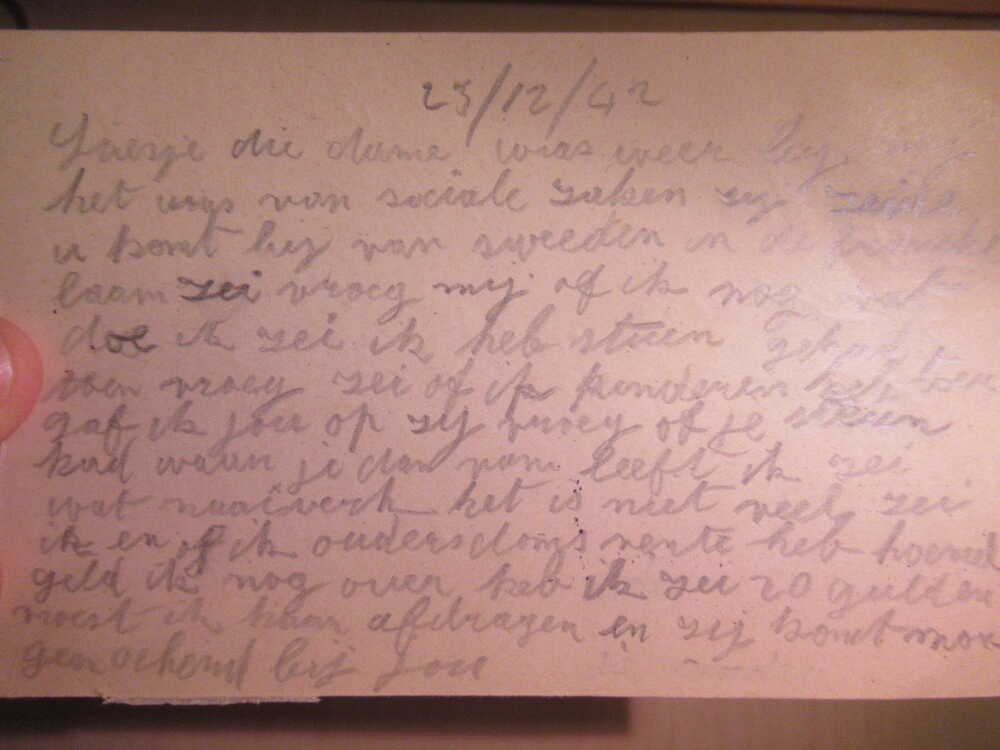 23/12/42
Liesje die dame was weer bij
het was van sociale zaken zij
u komt bij van sweeden in de
laam zei vroeg mij of ik nog wat
doe ik zei ik heb steun gehad
toen vroeg zei of ik kinderen heb toen
gaf ik jou op zij vroeg of je steun
had waar je dan van leeft ik zei
wat naaiwerk het is niet veel zei
ik en of ik ouderdoms rente heb hoeveel
geld ik nog over heb ik zei 20 gulden
moest ik haar afdragen en zij komt mor
gen ochond bij jou